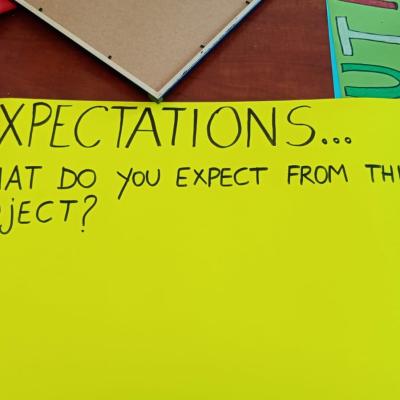 XPECTATIONS...
HAT DO YOU EXPECT FROM THI
OJECT?